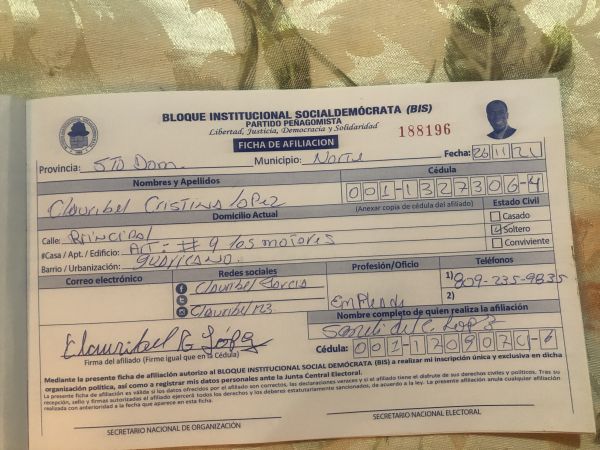 BLOQUE INSTITUCIONAL SOCIALDEMÓCRATA (BIS)
PARTIDO PEÑAGOMISTA
Libertad, Justicia, Democracia y Solidaridad
188196
FICHA DE AFILIACION
Provincia: STO Dom. Municipio: Norte Fecha: 26 11 21
Nombres y Apellidos Cédula
Clauribel Cristina Lopez 001-1327306-4
Domicilio Actual (Anexar copia de cédula del afiliado) Estado Civil
Calle: Principal Casado
#Casa / Apt. / Edificio: # 9 los Soltero
Barrio / Urbanización: Guaricano Conviviente
Correo electrónico Redes sociales Profesión/Oficio Teléfonos
Clauribel Garcia 1) 809-235-9835
Clauribel123 Empleada 2)
Nombre completo de quien realiza la afiliación
Clauribel Lopez Lopez
Firma del afiliado (Firme igual que en la Cédula) Cédula: 001-
Mediante la presente ficha de afiliación autorizo al BLOQUE INSTITUCIONAL SOCIAL DEMÓCRATA (BIS) a realizar mi inscripción única y exclusiva en dicha
organización política, así como a registrar mis datos personales ante la Junta Central Electoral.
La presente ficha de afiliación es válida si los datos ofrecidos por el afiliado son correctos, las declaraciones veraces y si el afiliado tiene el disfrute de sus derechos civiles y políticos. Tras su
recepción, sello y firmas autorizadas el afiliado ejercerá todos los derechos y los deberes estatutariamente sancionados, de acuerdo a la ley. La presente afiliación anula cualquier afiliación
realizada con anterioridad a la fecha que aparece en esta ficha.
SECRETARIO NACIONAL DE ORGANIZACIÓN SECRETARIO NACIONAL ELECTORAL